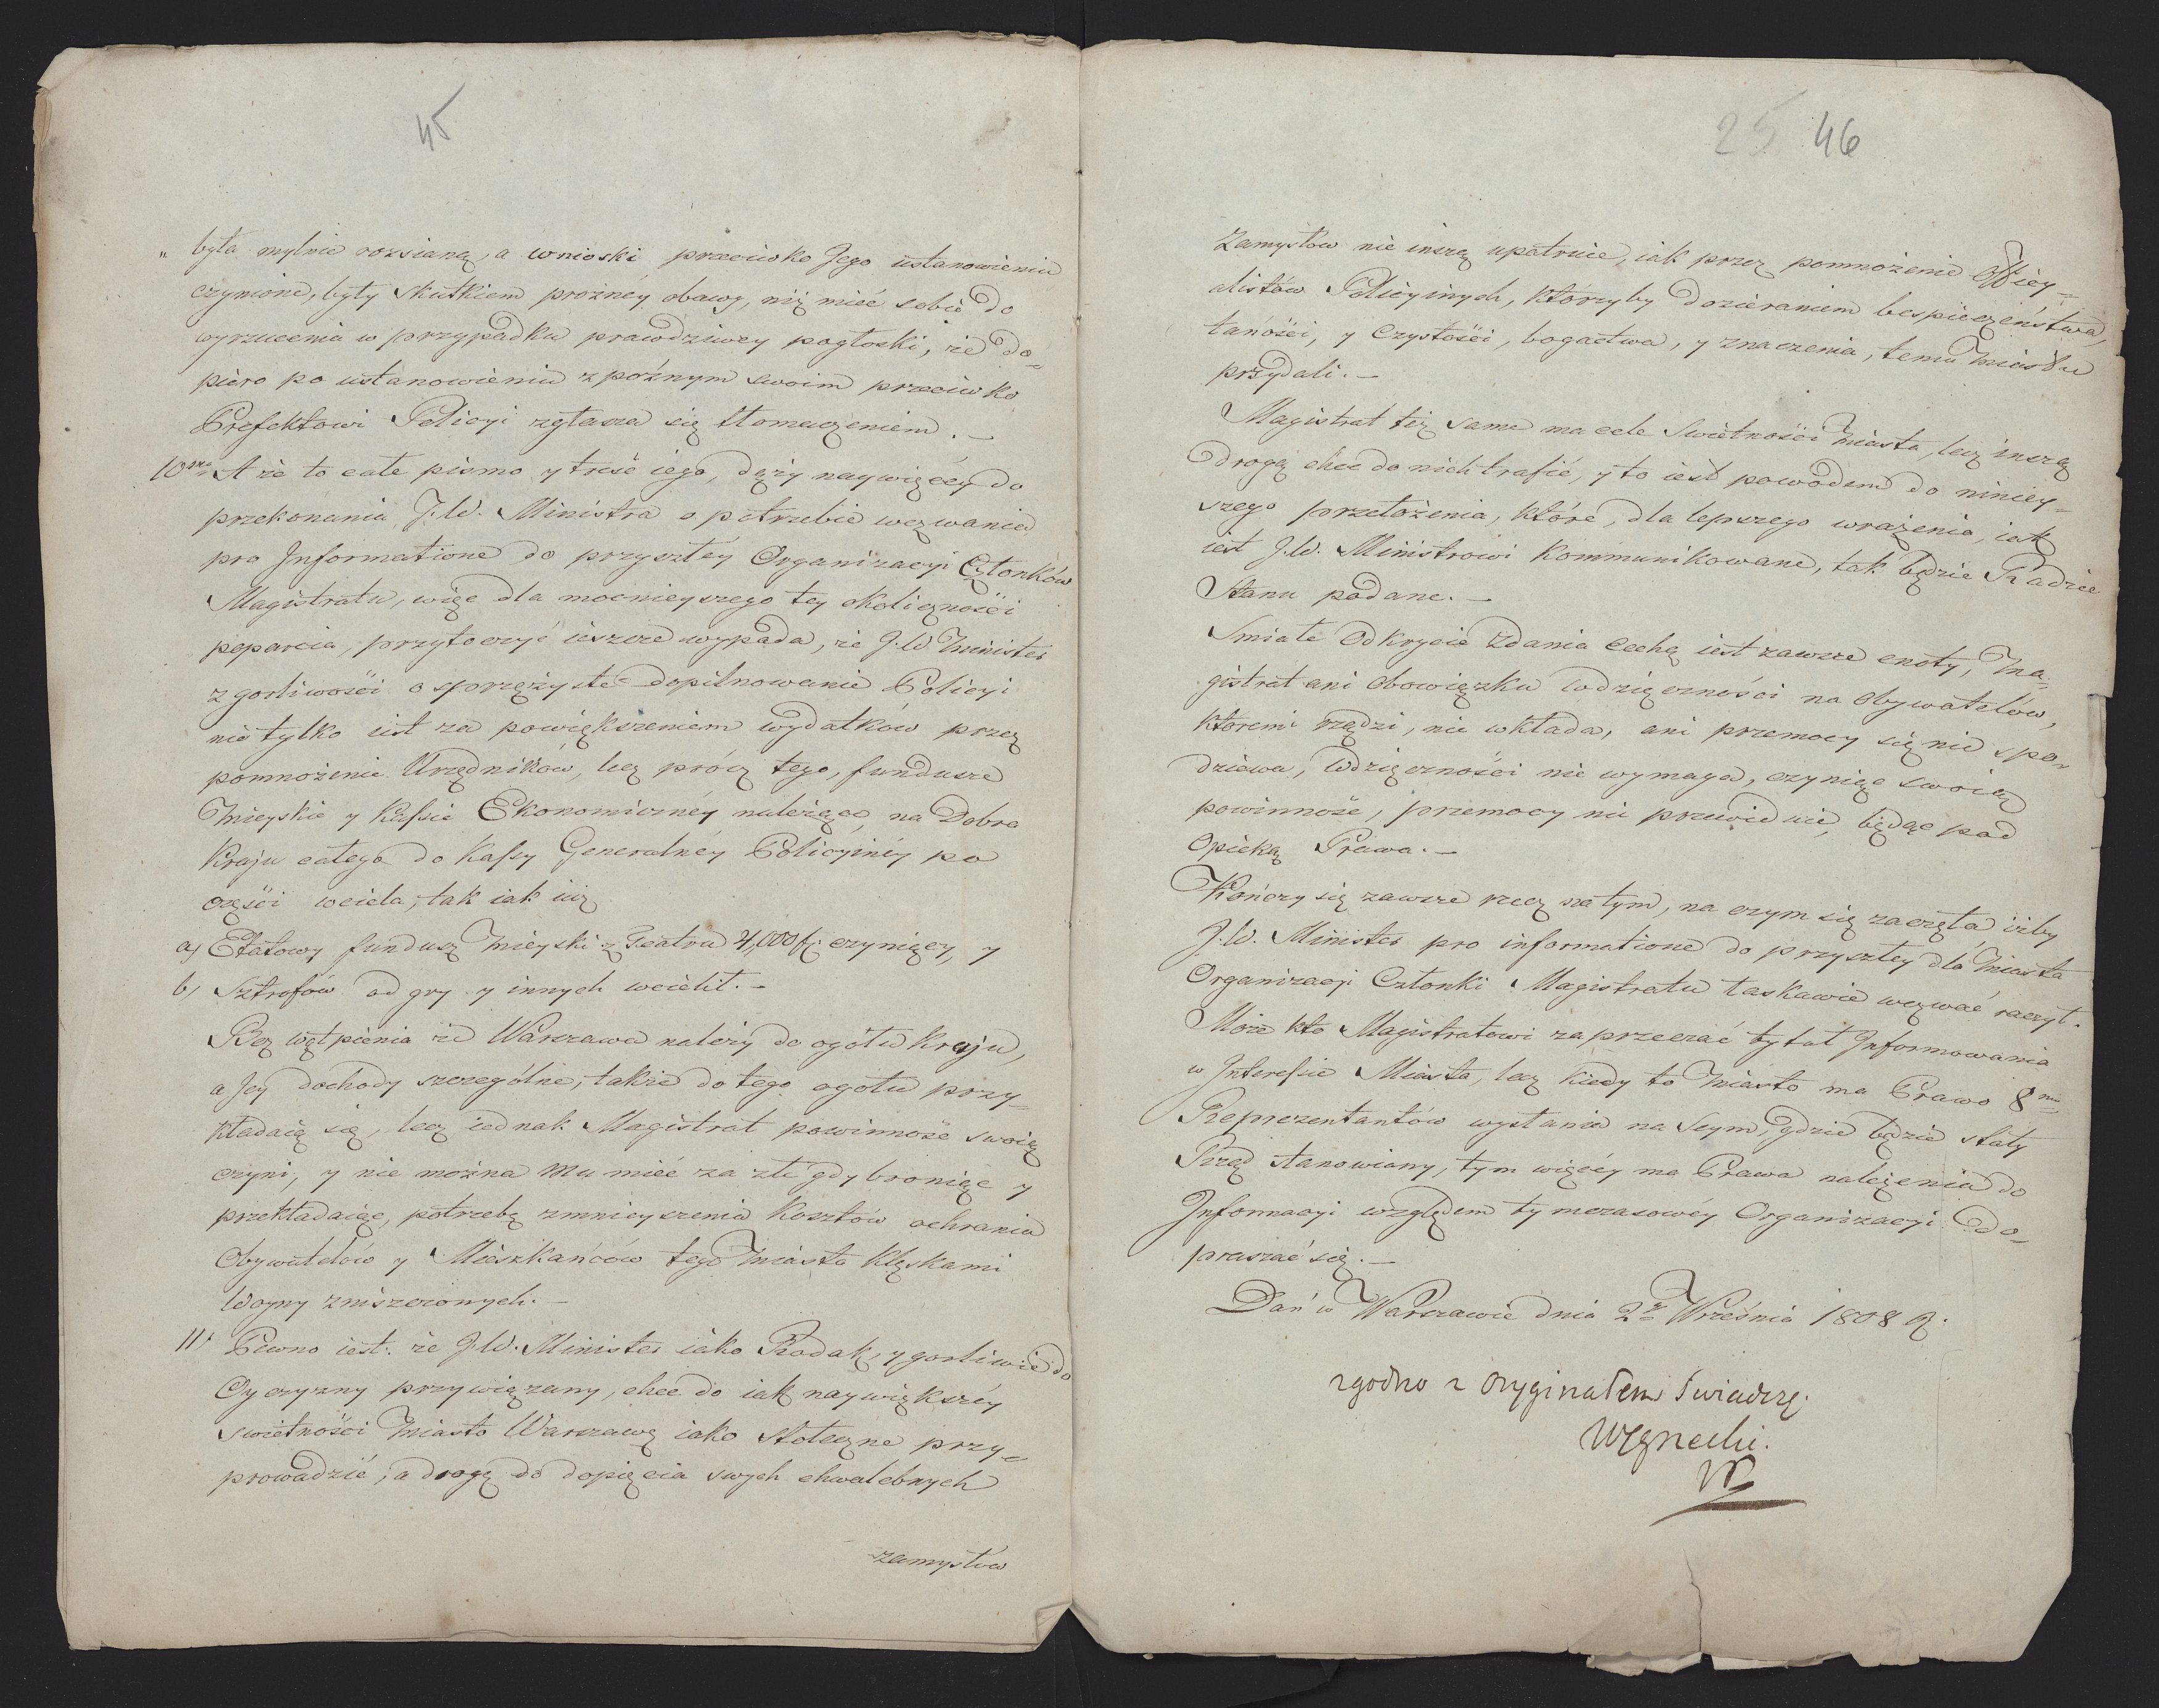 45
„ była mylnie rozsianą, a wnioski przeciwko Jego ustanowieniu
czynione, były skutkiem prożney obawy, niż mieć sobie do
wyrzucenia w przypadku prawdziwey pogłoski, że do=
piero po ustanowieniu z poźnym swoim przeciwko
Prefektowi Policyi zgłasza się tłomaczeniem. —
10mo A że to całe pismo y treść iego, dąży naywięcéy do
przekonania J.W. Ministra o potrzebie wezwania
pro Informatione do przyszłéy Organizacyi Członków
Magistratu, więc dla mocnieyszego tey okolicznośći
poparcia, przytoczyć ieszcze wypada, że J.W Minister
z gorliwośći o sporężyste dopilnowanie Policyi
nie tylko iest za powiększeniem wydatków przez
pomnożenie Urzędników, lecz prócz tego, fundusze
Mieyskie y Kassie Ekonomicznéy należące, na Dobro
Kraju całego do Kassy Generalnéy Policyinéy po
częśći wciela, tak iak iuż
a) Etatowy fundusz Mieyski z Teatru 4,000 f. czyniący, y
b) Sztrofów od gry y innych wcielił. —
Bez wątpienia że Warszawa należy do ogółu Kraju,
a Jey dochody szczególne, także do tego ogółu przy=
kładaią się, lecz iednak Magistrat powinność swoią
czyni, y nie można mu mieć za złe gdy broniąc y
przekładaiąc, potrzebę zmnieyszenia Kosztów ochrania
Obywatelów y Mieszkańców tego Miasta klęskami
Woyny zniszczonych. —
11) Pewno iest: że J.W. Minister iako Rodak, y gorliwie do
Oyczyzny przywiązany, chce do iak naywiększéy
swietnośći Miasto Warszawę iako stołeczne przy=
prowadzić, a drogę do dopięcia swych chwalebnych
zamysłów
25 46
Zamysłów nie inszą upatruie, iak przez pomnożenie Officy=
alistów Policyinych, którzyby dozieraniem bespieczeństwa,
tańośći, y Czystośći, bogactwa, y znaczenia, temu Miastu
przydali. —
Magistrat też same ma cele Swietnośći Miasta, lecz inszą
drogą chce do nich trafić, y to iest powodem do niniey=
szego przełożenia, które, dla lepszego wrażenia, iak
iest J.W. Ministrowi Kommunikowane, tak będzie Radzie
Stanu podane. —
Smiałe Odkrycie Zdania Cechą iest zawsze cnoty, Ma=
gistrat ani Obowiązku wdzięcznośći na Obywatelów,
któremi rządzi, nie wkłada, ani przemocy się nie spo=
dziewa, Wdzięcznośći nie wymaga, czyniąc swoią
powinność, przemocy nie przewiduie, będąc pod
Opieką Prawa. —
Kończy się zawsze rzecz na tym, na czym się zaczęła iżby
J.W. Minister pro informatione do przyszłey dla Miasta
Organizacyi Członki Magistratu łaskawie wezwać raczył.
Może kto Magistratowi zaprzeczać tytuł Informowania
w Interessie Miasta, lecz kiedy to Miasto ma Prawo 8miu
Reprezentantów wysłania na Seym, gdzie będzie stały
Rząd stanowiony, tym więcéy ma Prawa należenia do
Informacyi względem tymczasowéy Organizacyi do=
praszać się. —
Dań w Warszawie dnia 2go Września 1808 R.
zgodno z Oryginałem świadczę.